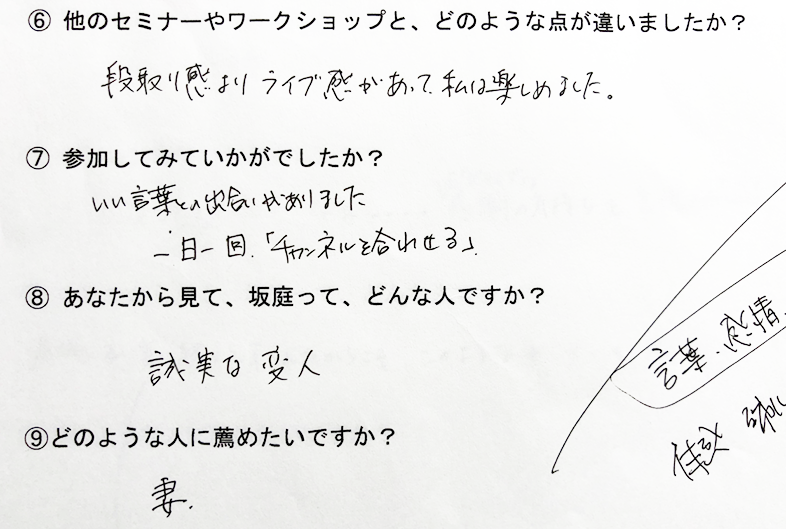 ⑥ 他のセミナーやワークショップと、どのような点が違いましたか？
段取り感よりライブ感があって、私は楽しめました。
⑦ 参加してみていかがでしたか？
いい言葉との出合いがありました
一日一回、「チャンネルを合わせる」
⑧ あなたから見て、坂庭って、どんな人ですか？
誠実な変人
⑨どのような人に薦めたいですか？
妻．
言葉、感情、